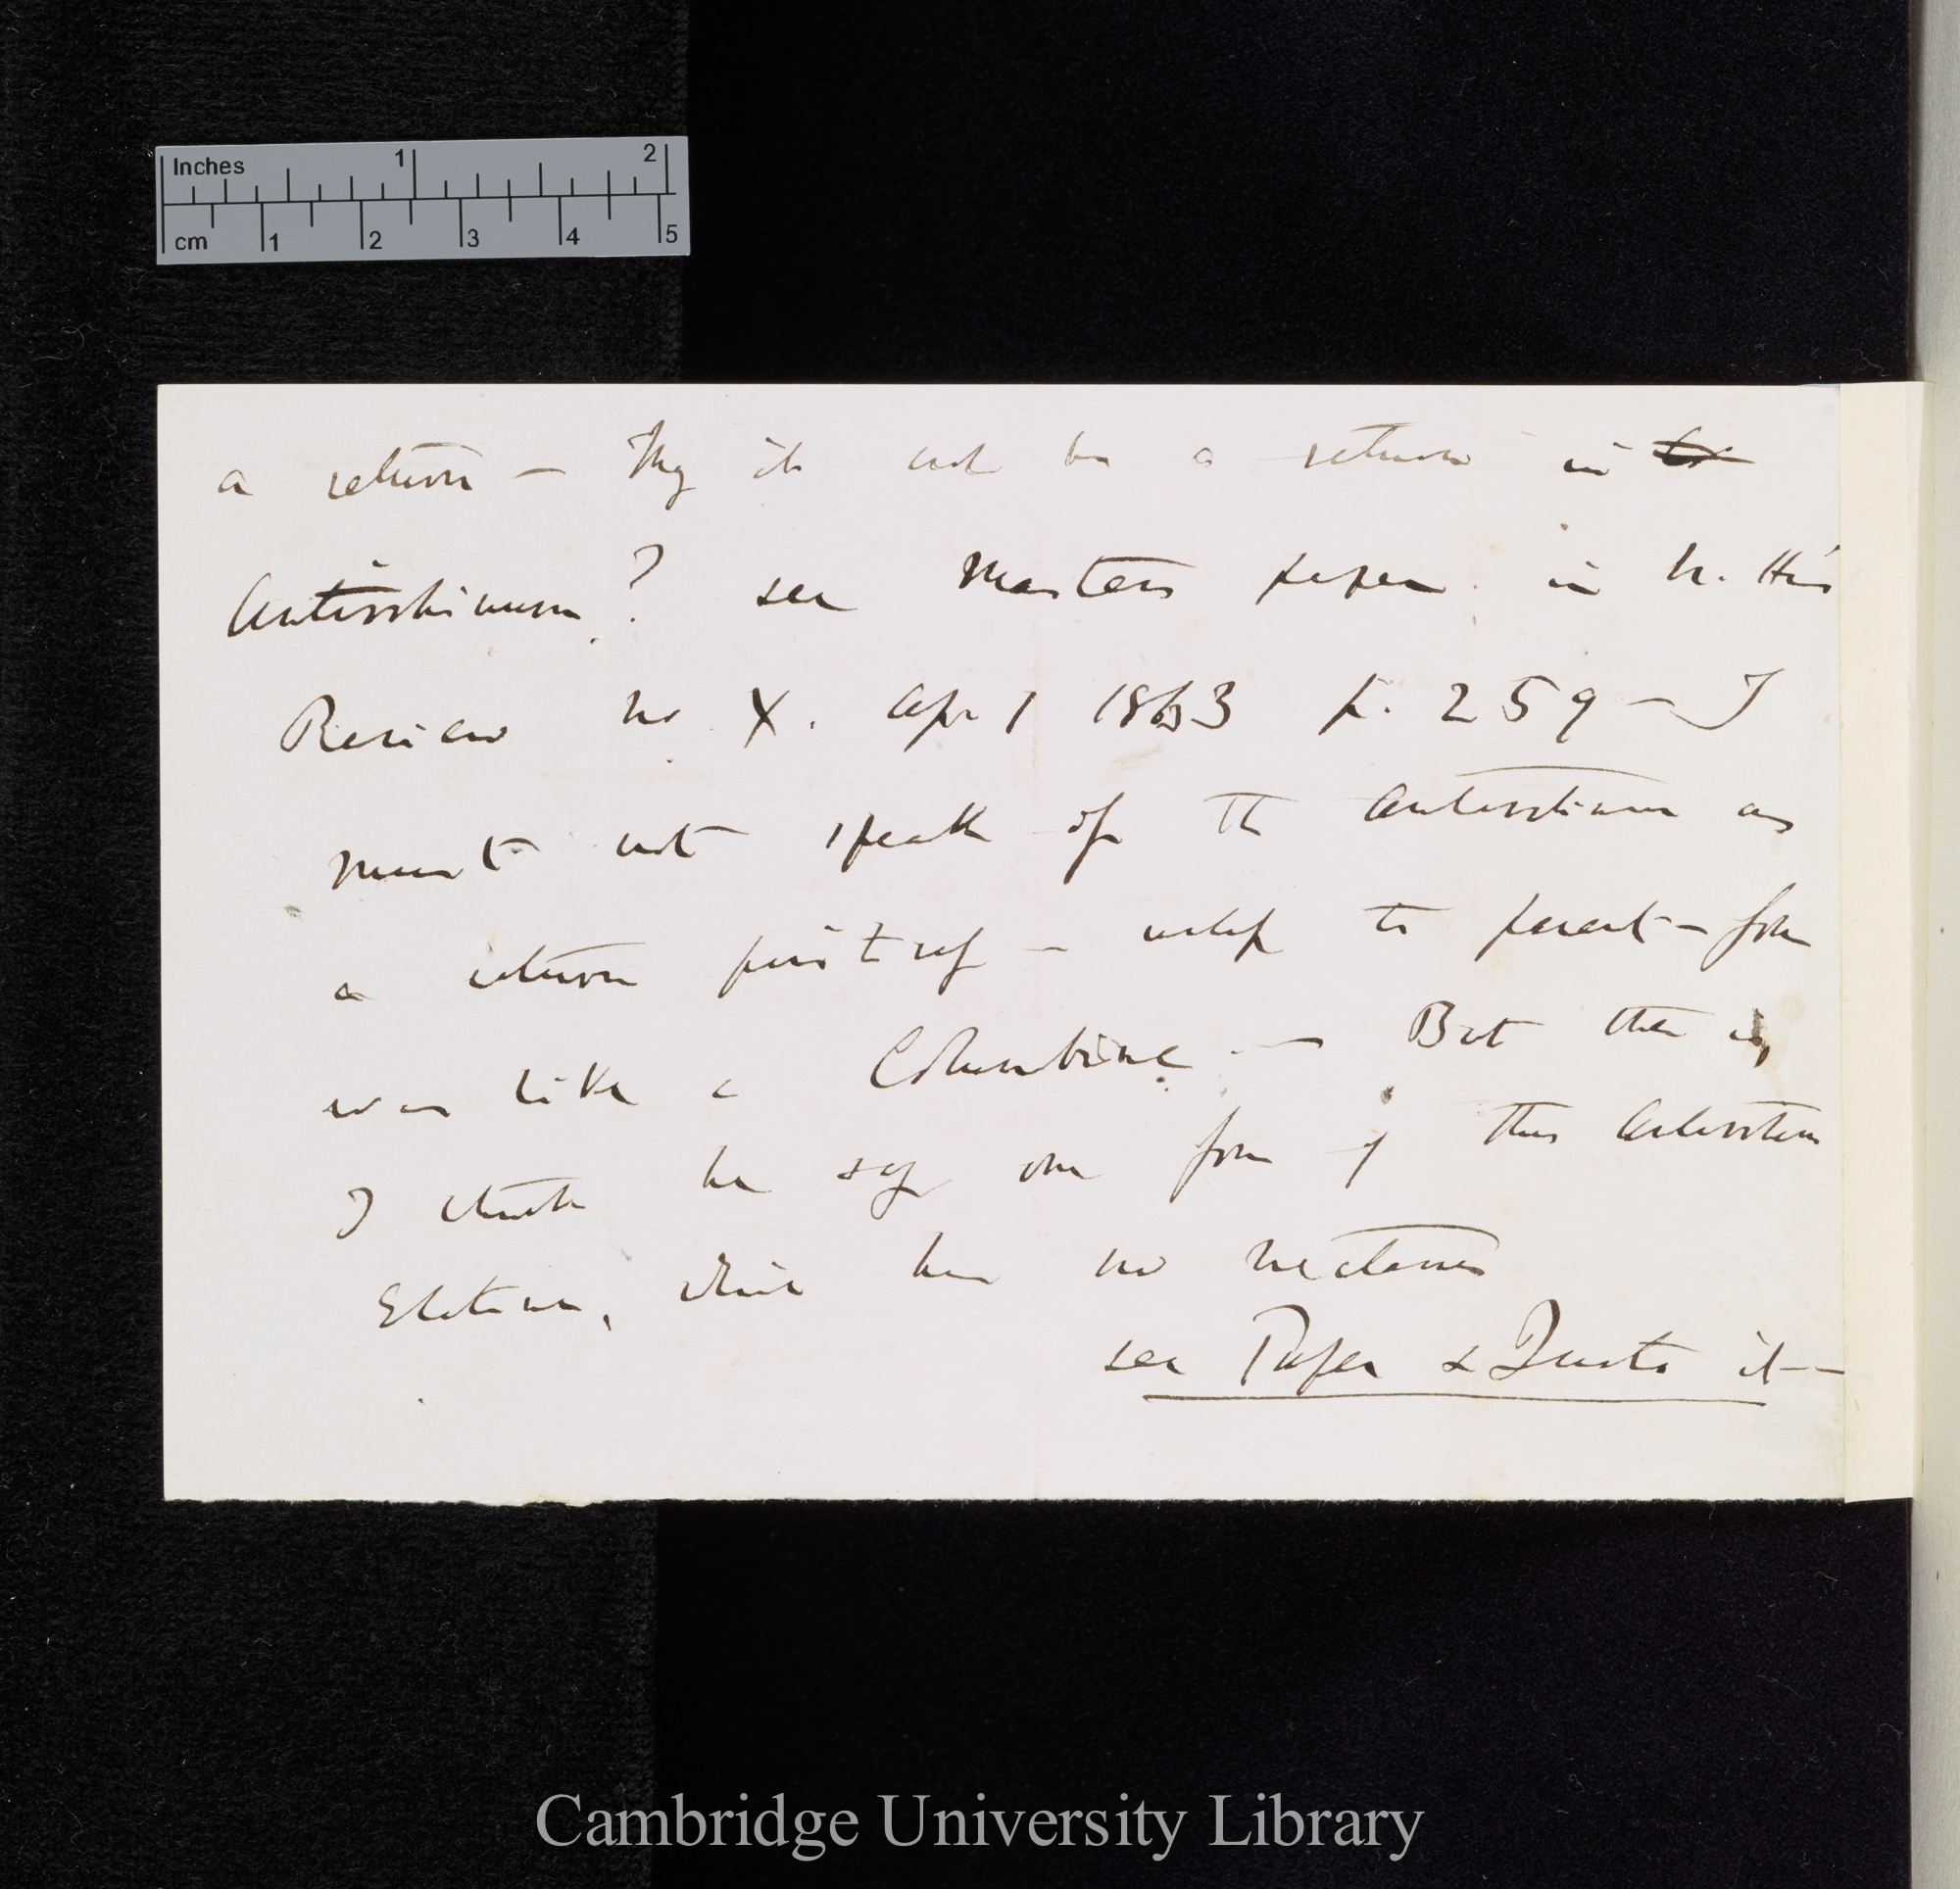 Inches 1 2
cm 1 2 3 4 5
a return — May it not be a return in
Antirrhinum? see Masters paper in N. His
Review No X. Apr 1 1863 p. 259 — I
must not speak of the Antirrhinum as
a return — to parent-form
was like a Columbine. — But there is,
I think he say one form of this Antirrhinum
Elatine, which has no nectaries
see Paper & Quote it —
Cambridge University Library